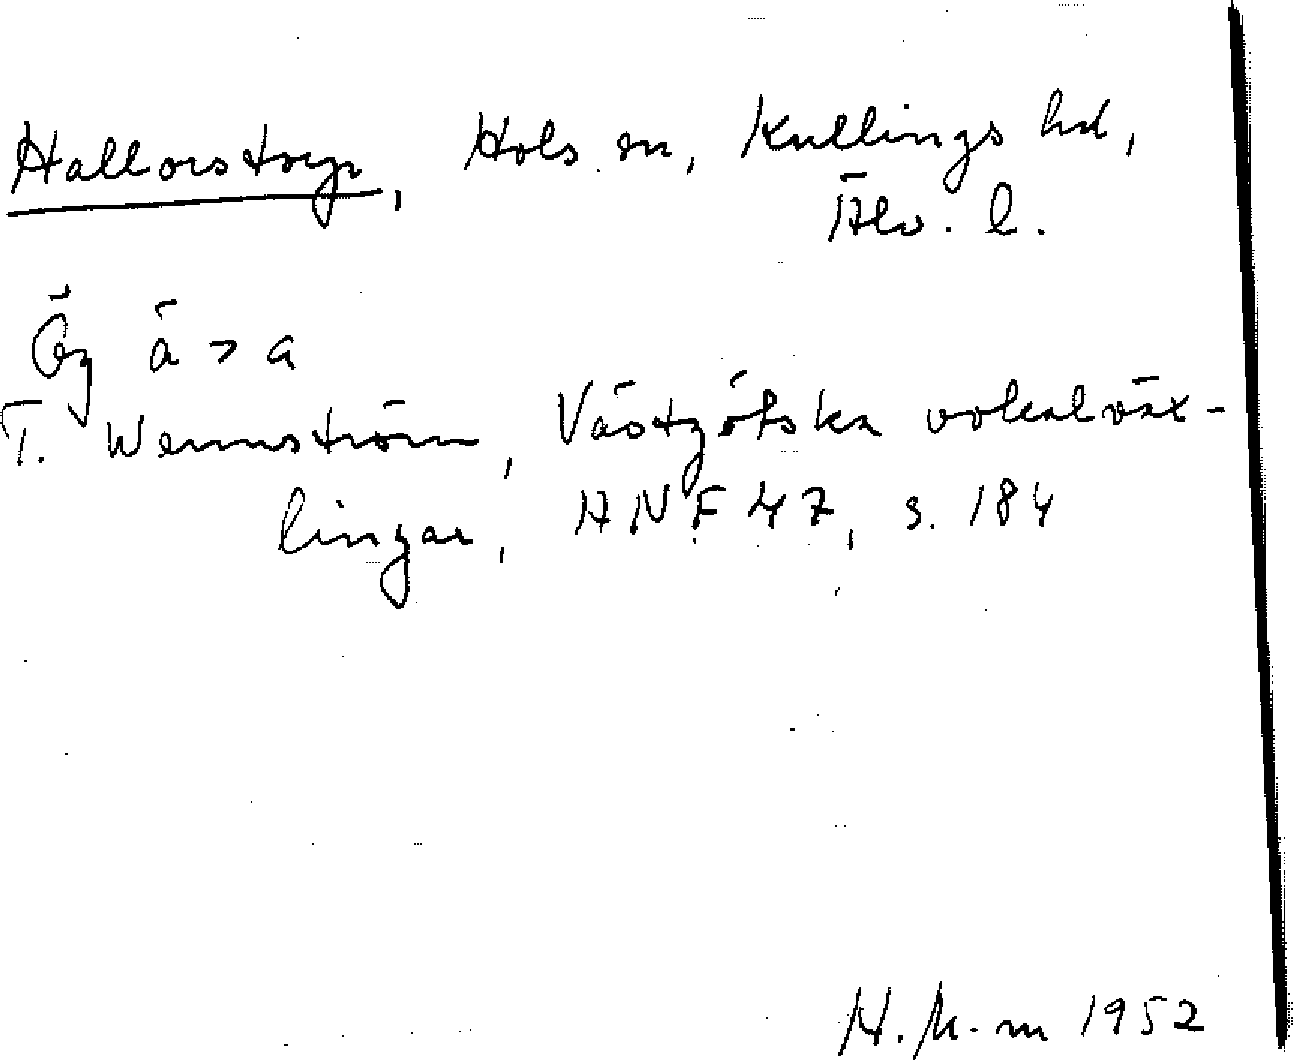 Hallorstorp, Hols sn, Kullings hd,
Älv. l.
Ög ä > a
T. Wennström, Västgötska vokalväx-
lingar, ANF 47, s. 184
H. K-m 1952